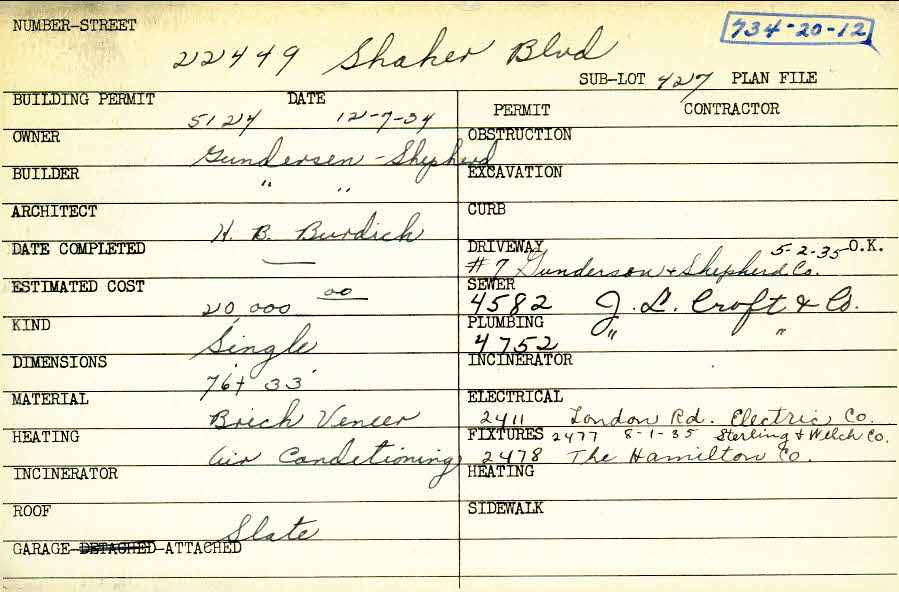 NUMBER-STREET
734-20-12
22449 Shaker Blvd
SUB-LOT 427 PLAN FILE
BUILDING PERMIT DATE
5124 12-7-34
PERMIT CONTRACTOR
OWNER
Gundersen-Shepherd
BUILDER
" "
ARCHITECT
H. B. Burdick
DATE COMPLETED
—
ESTIMATED COST
20,000 00
KIND
Single
DIMENSIONS
76+ 33'
MATERIAL
Brick Veneer
HEATING
Air Condetioning
INCINERATOR
ROOF
Slate
GARAGE-DETACHED-ATTACHED
OBSTRUCTION
EXCAVATION
CURB
DRIVEWAY 5-2-35 O.K.
#7 Gunderson & Shepherd Co.
SEWER
4582 J. L. Croft & Co.
PLUMBING
4752 " "
INCINERATOR
ELECTRICAL
2411 London Rd. Electric Co.
FIXTURES 2477 8-1-35 Sterling & Welch Co.
2478 The Hamilton Co.
HEATING
SIDEWALK